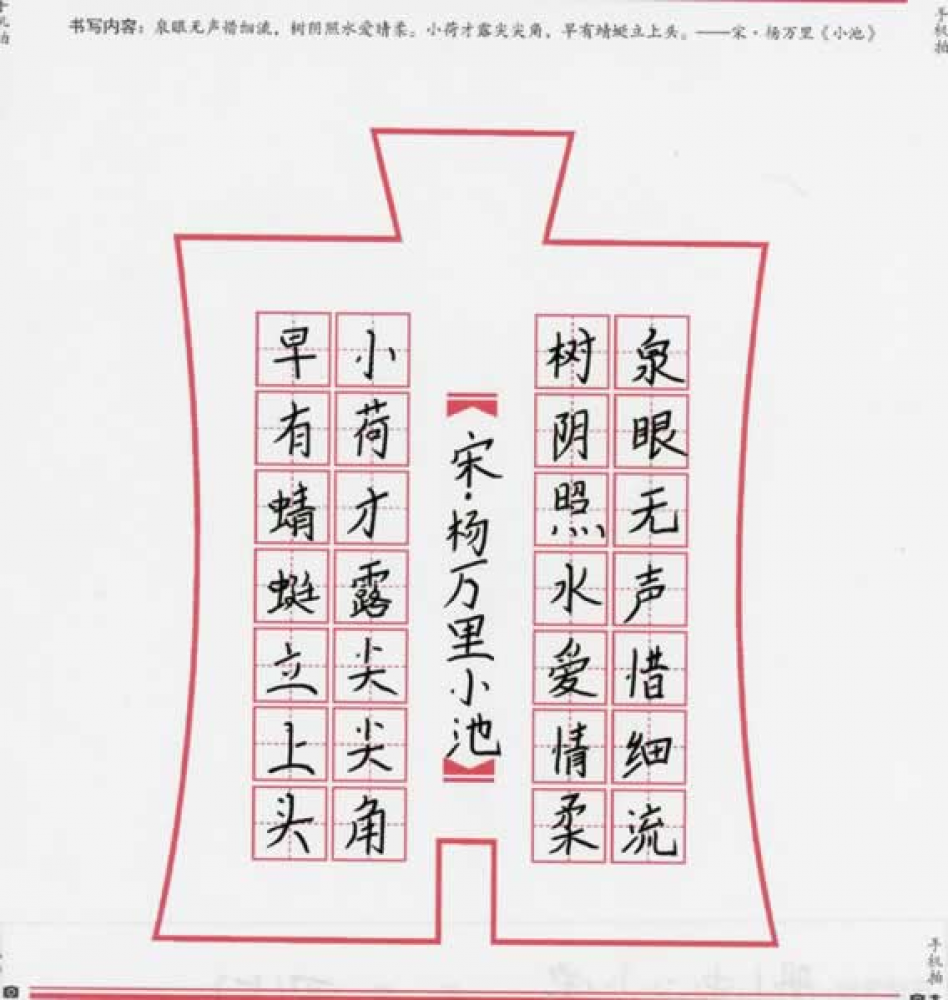 书写内容：泉眼无声惜细流，树阴照水爱晴柔。小荷才露尖尖角，早有蜻蜓立上头。——宋·杨万里《小池》
泉眼无声惜细流
树阴照水爱情柔
宋·杨万里小池
小荷才露尖尖角
早有蜻蜓立上头
手机拍
手机拍